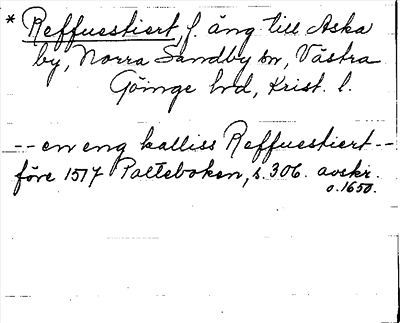 * Reffuestiert, f. äng till Aska
by, Norra Sandby sn, Västra
Göinge hd, Krist. l.
-- en eng kalliss Reffuestiert --
före 1517 Palteboken, s. 306. avskr.
o. 1650.